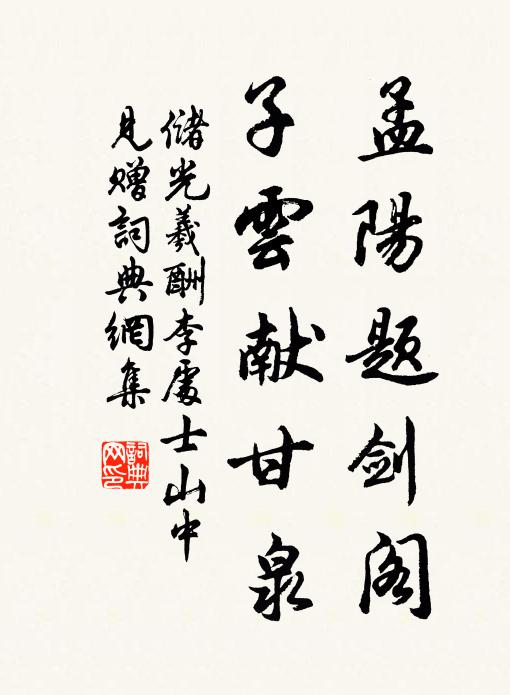 孟陽題剑阁
子雲献甘泉
儲光羲酬李處士山中
見贈詞典網集
詞典网印